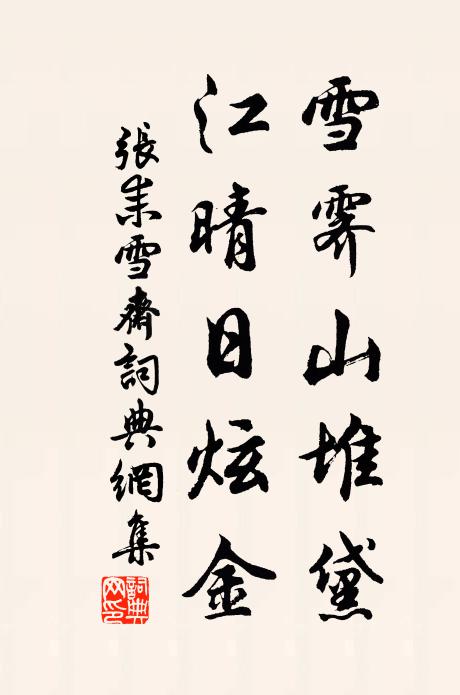 雪霽山堆黛
江晴日炫金
張耒雪齋詞典網集
詞典
网印